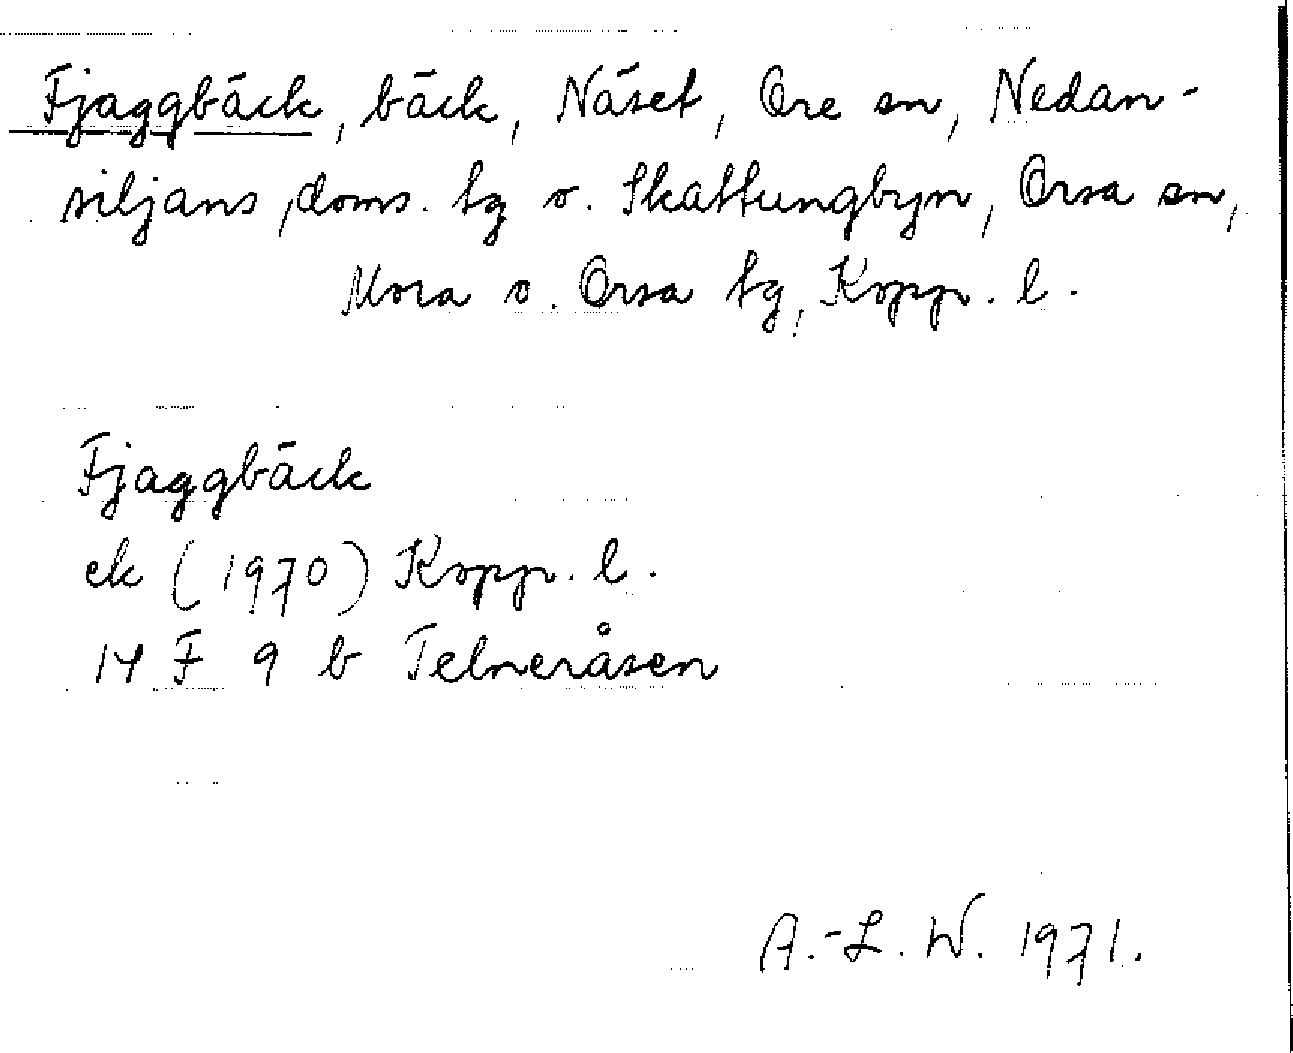 Fjaggbäck, bäck, Näset, Ore sn, Nedan-
siljans doms. tg o. Skattungbyn, Orsa sn,
Mora o. Orsa tg, Kopp. l.
Fjaggbäck
ek (1970) Kopp. l.
14 F 9 b Telneråsen
A.-L. W. 1971.